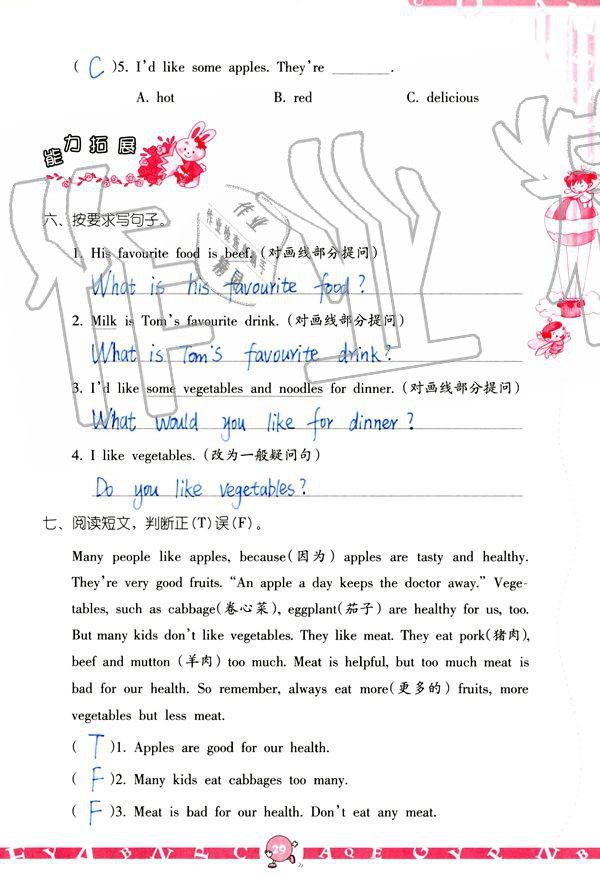 ( C )5. I'd like some apples. They're ________.
A. hot B. red C. delicious
能力拓展
六、按要求写句子。
1. His favourite food is beef. (对画线部分提问)
What is his favourite food?
2. Milk is Tom's favourite drink. (对画线部分提问)
What is Tom's favourite drink?
3. I'd like some vegetables and noodles for dinner. (对画线部分提问)
What would you like for dinner?
4. I like vegetables. (改为一般疑问句)
Do you like vegetables?
七、阅读短文，判断正(T)误(F)。
Many people like apples, because(因为) apples are tasty and healthy.
They're very good fruits. "An apple a day keeps the doctor away." Vege-
tables, such as cabbage(卷心菜), eggplant(茄子) are healthy for us, too.
But many kids don't like vegetables. They like meat. They eat pork(猪肉),
beef and mutton (羊肉) too much. Meat is helpful, but too much meat is
bad for our health. So remember, always eat more(更多的) fruits, more
vegetables but less meat.
( T )1. Apples are good for our health.
( F )2. Many kids eat cabbages too many.
( F )3. Meat is bad for our health. Don't eat any meat.
29